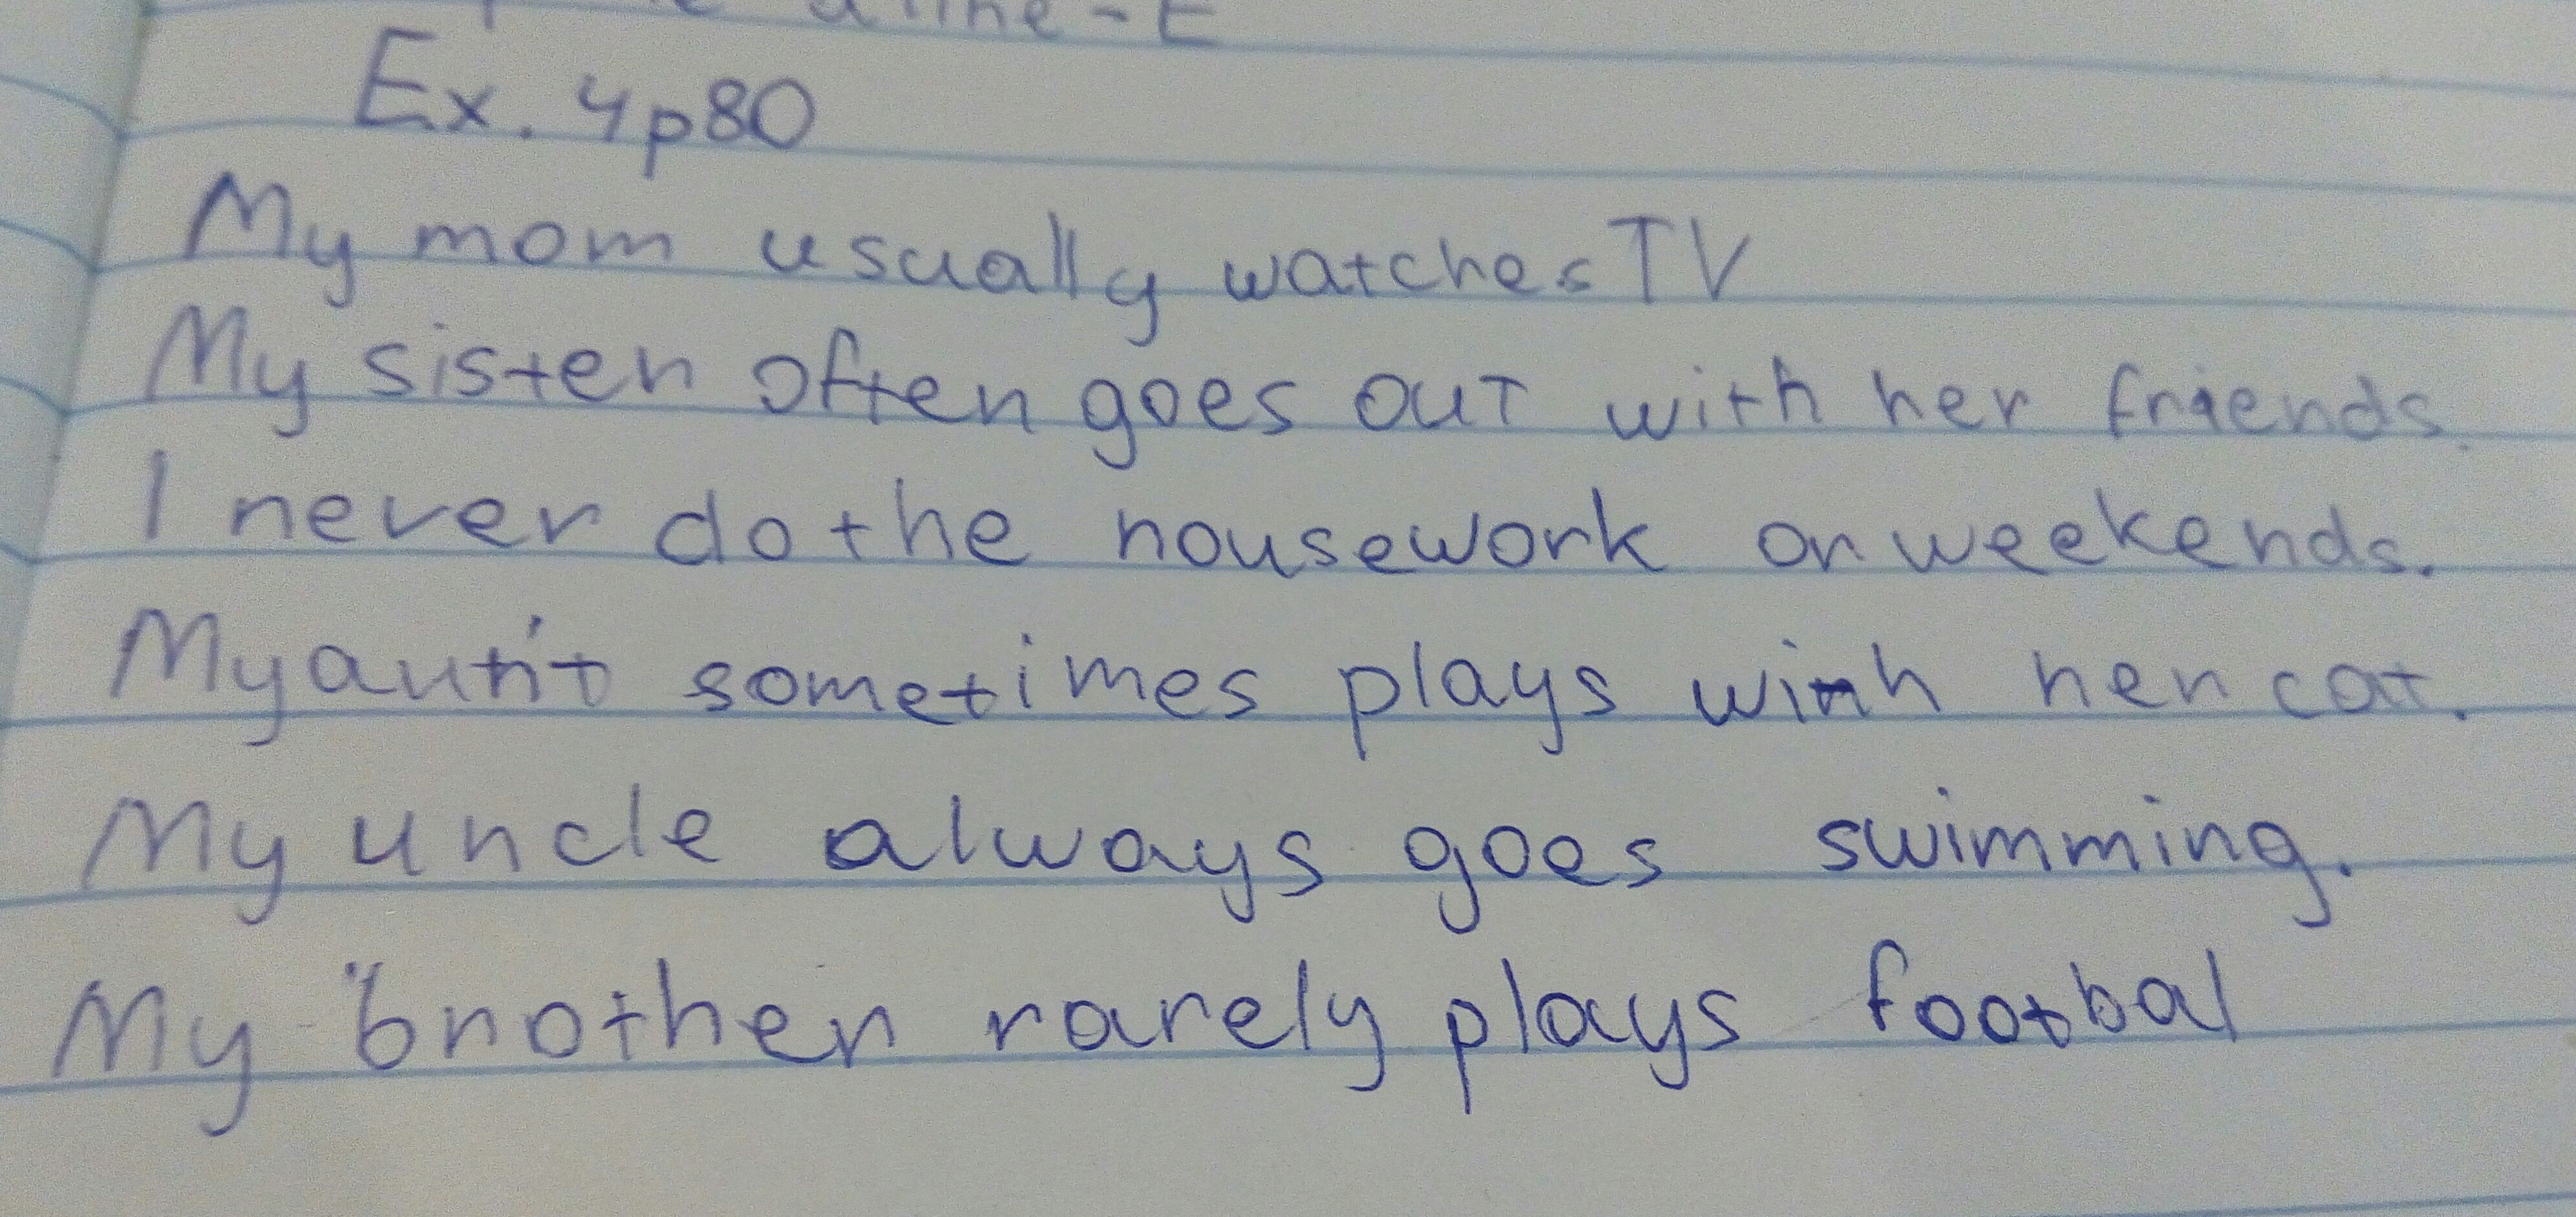 Ex. 4p80
My mom usually watches TV
My sister often goes out with her friends.
I never do the housework on weekends.
My aunt sometimes plays with her cat.
My uncle always goes swimming.
My brother rarely plays footbal